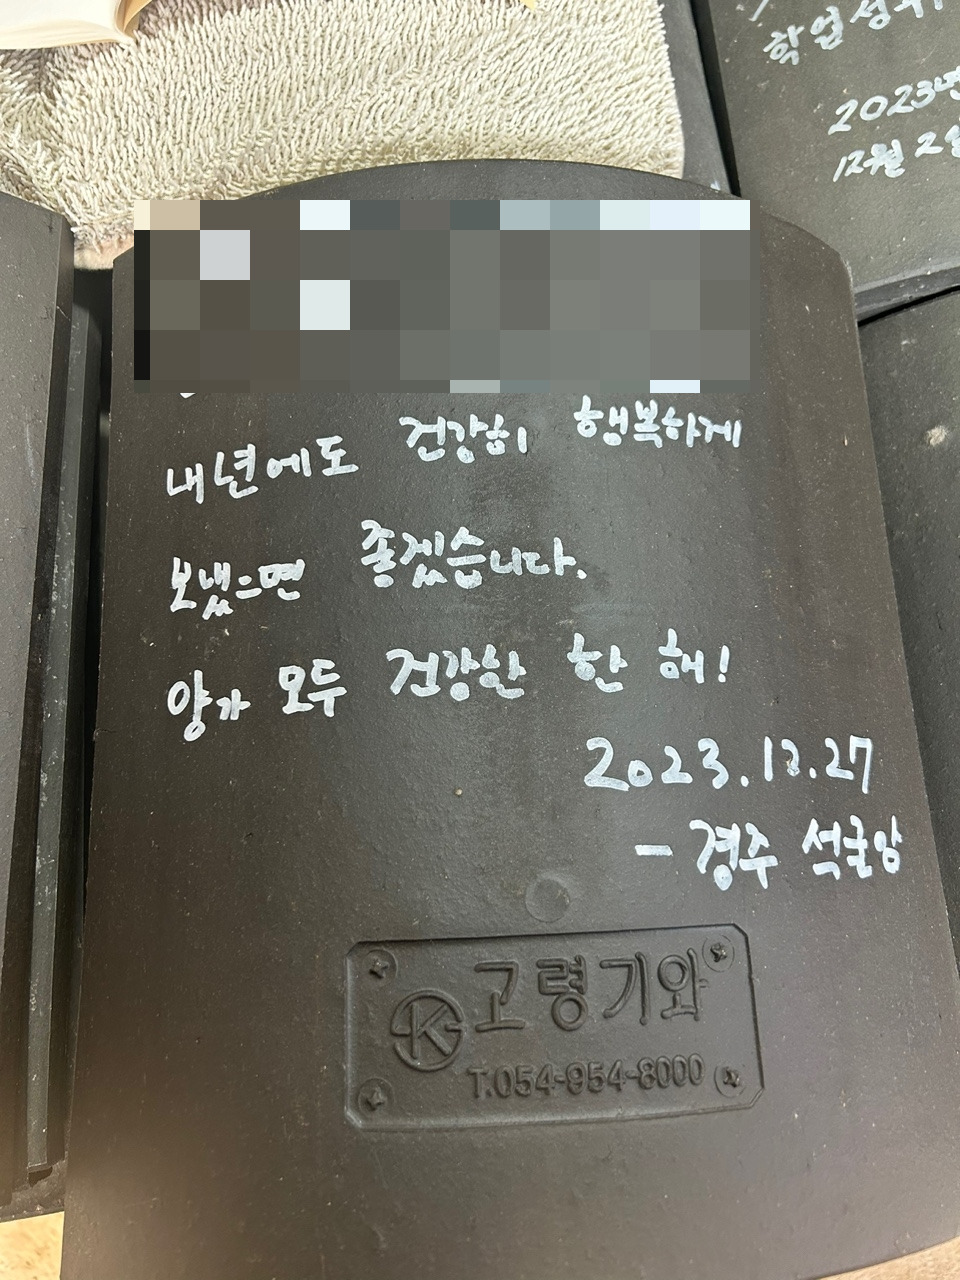 학업성취
2023년
12월 2일
내년에도 건강히 행복하게
보냈으면 좋겠습니다.
양가 모두 건강한 한 해!
2023.12.27
- 경주 석굴암
고령기와
T.054-954-8000